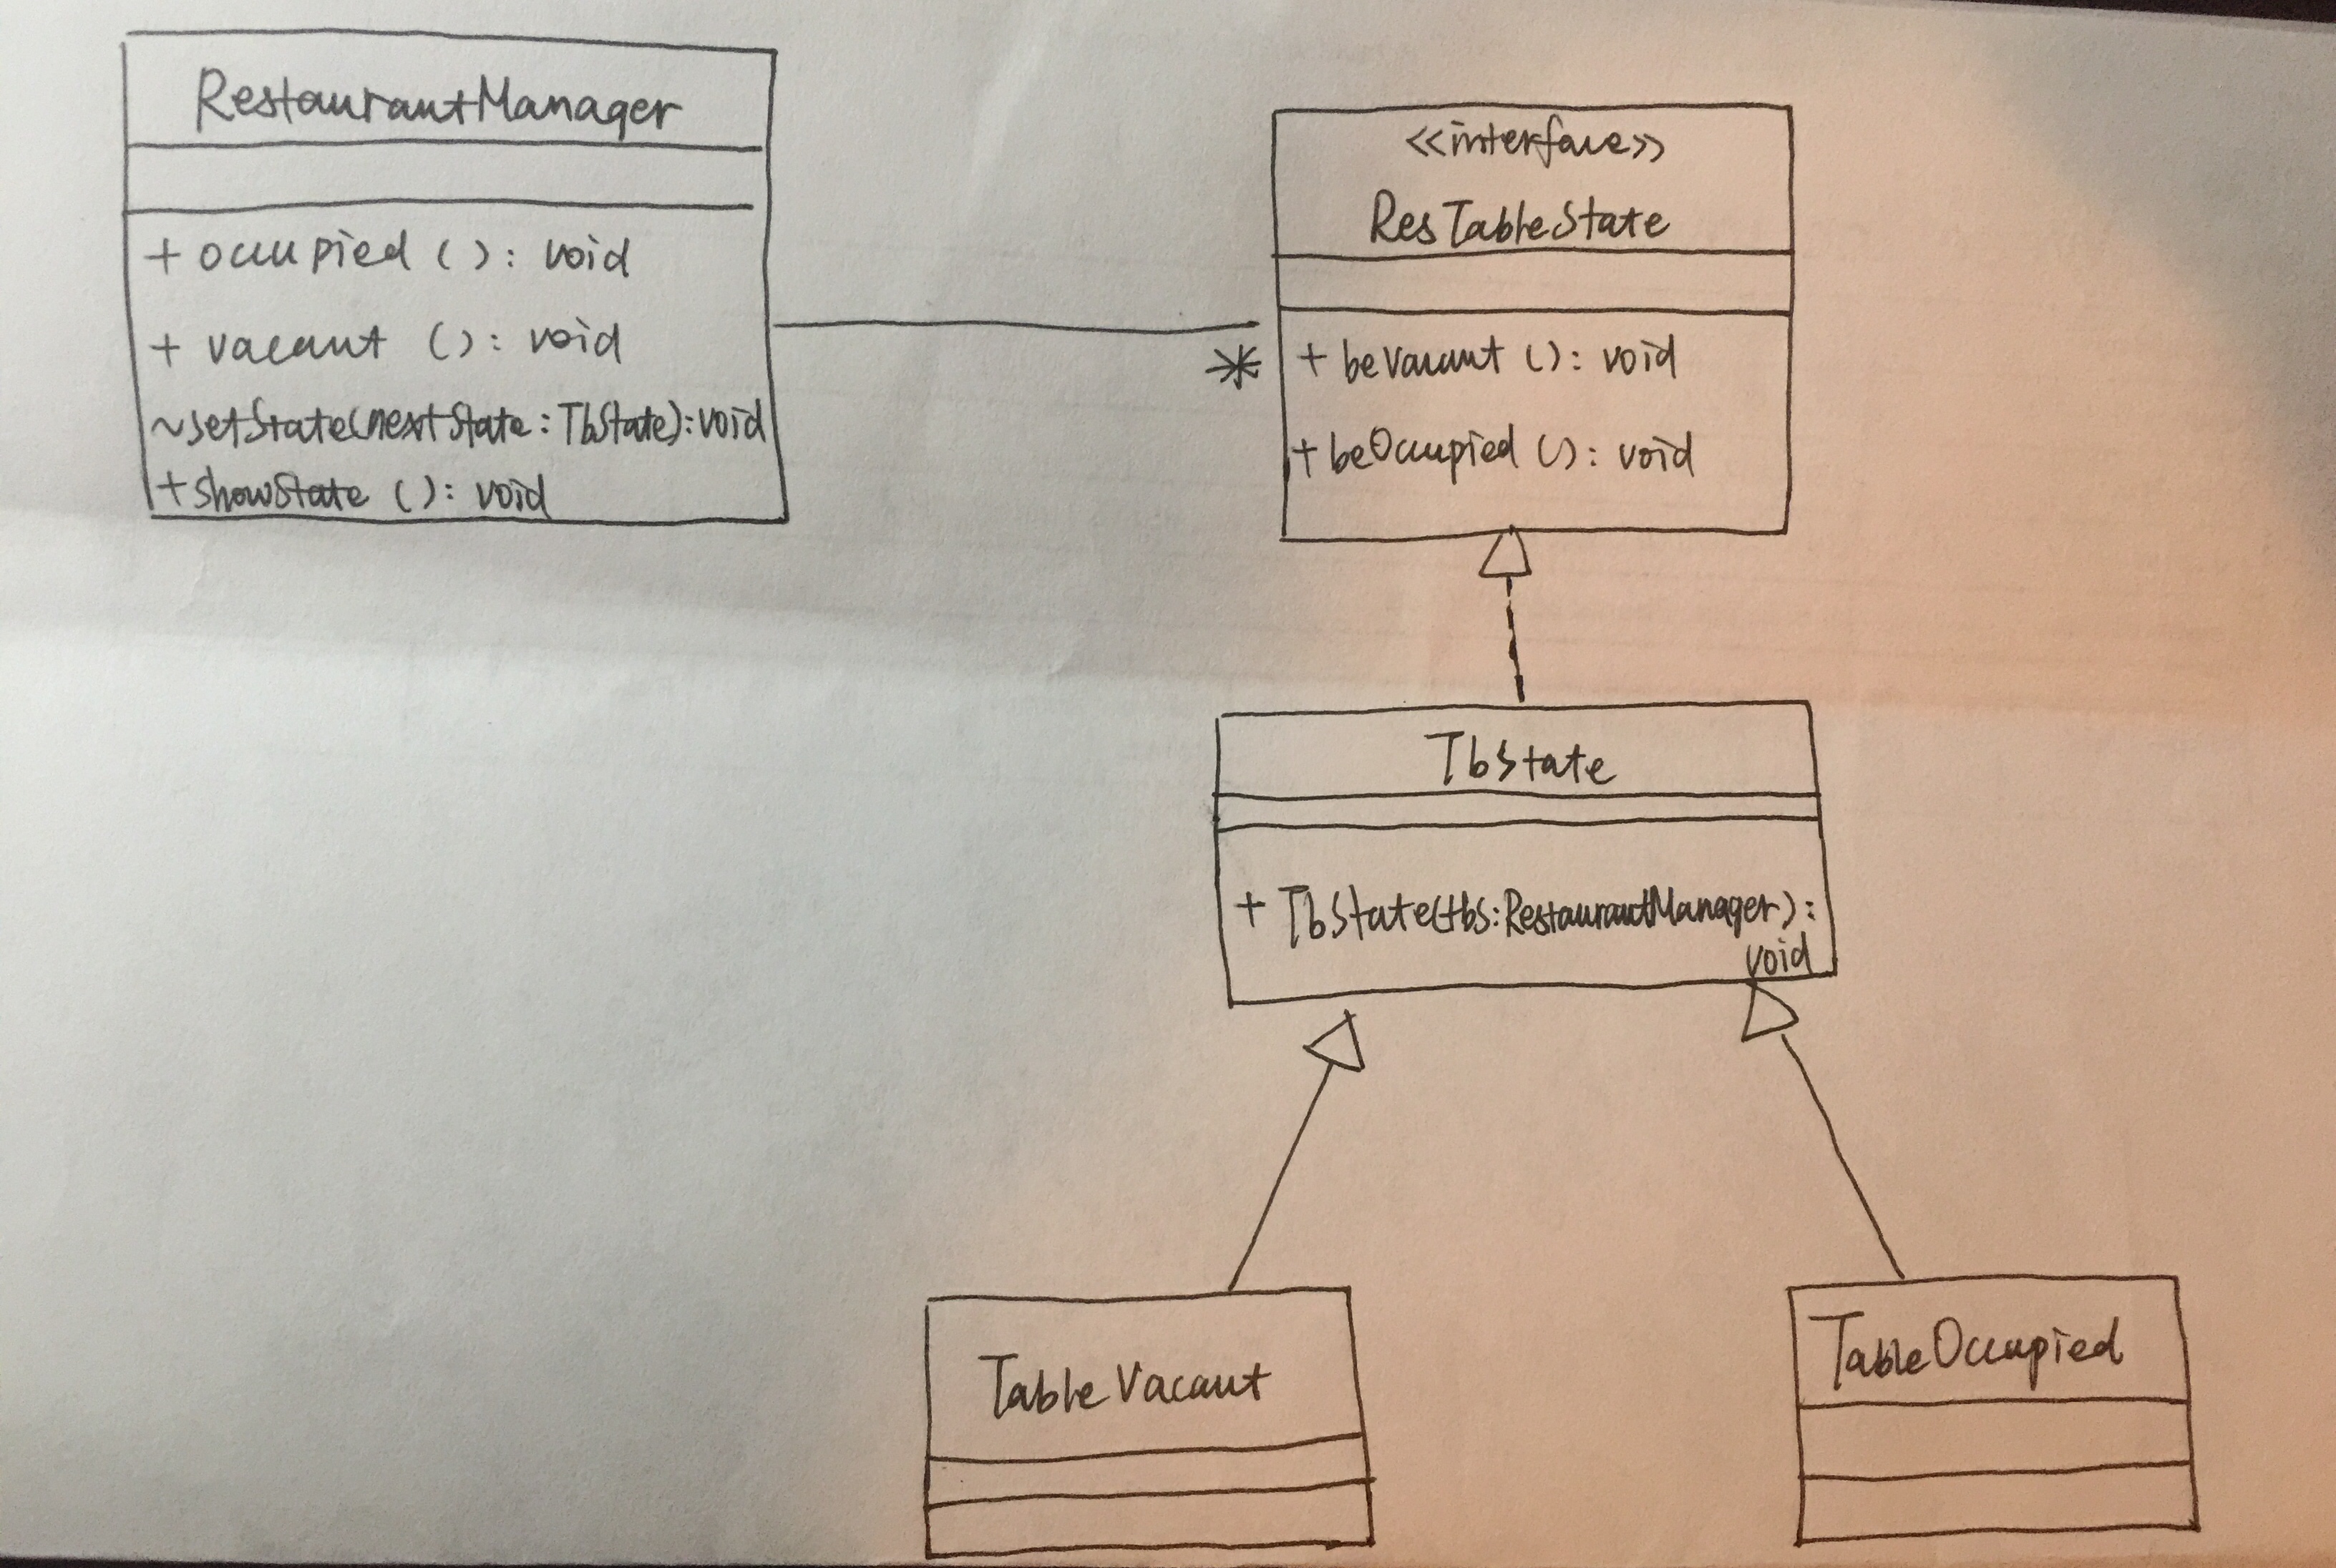 RestaurantManager
+ occupied ( ): void
+ vacant ( ): void
~setState(nextState: TbState): void
+showState ( ): void
<<interface>>
ResTableState
*
+ beVacant ( ): void
+ beOccupied ( ): void
TbState
+ TbState(tbs:RestaurantManager):
void
TableVacant
TableOccupied